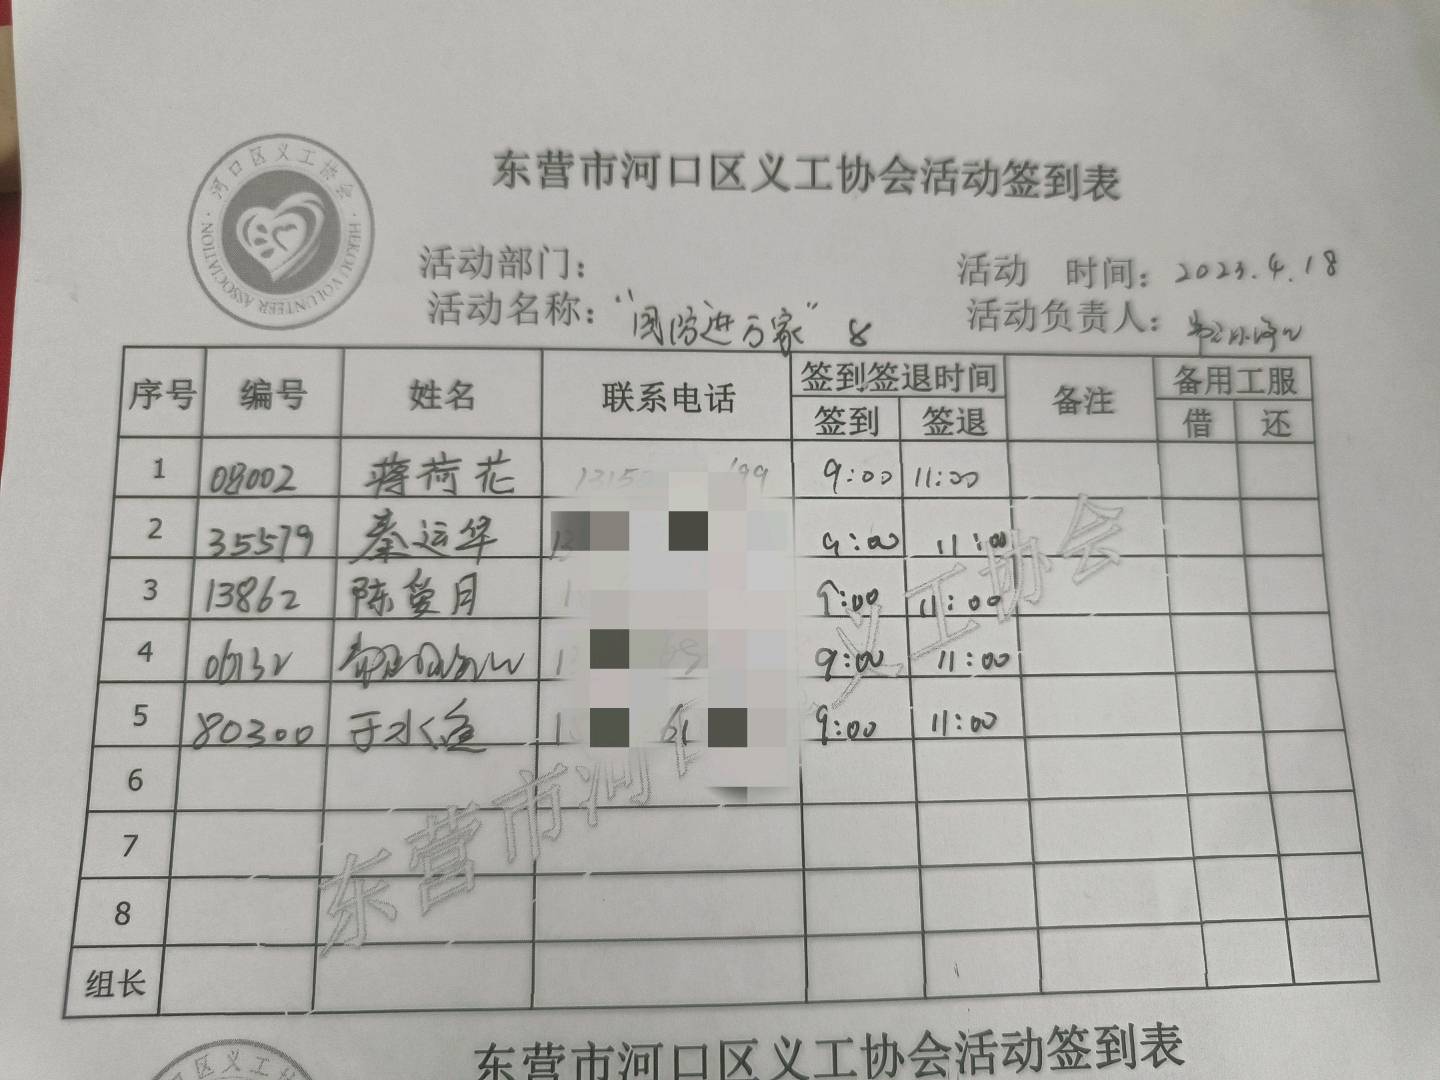 河口区义工协会
HEKOU VOLUNTEER ASSOCIATION
东营市河口区义工协会活动签到表
活动部门：
活动 时间：2023.4.18
活动名称：“国防进万家” 8
活动负责人：
序号 编号 姓名 联系电话 签到签退时间 备注 备用工服
签到 签退 借 还
1 08002 蒋荷花 9:00 11:00
2 35579 秦运华 9:00 11:00
3 13862 陈爱月 9:00 11:00
4 06132 9:00 11:00
5 80300 于水 9:00 11:00
6
7
8
组长
东营市河口区义工协会
东营市河口区义工协会活动签到表